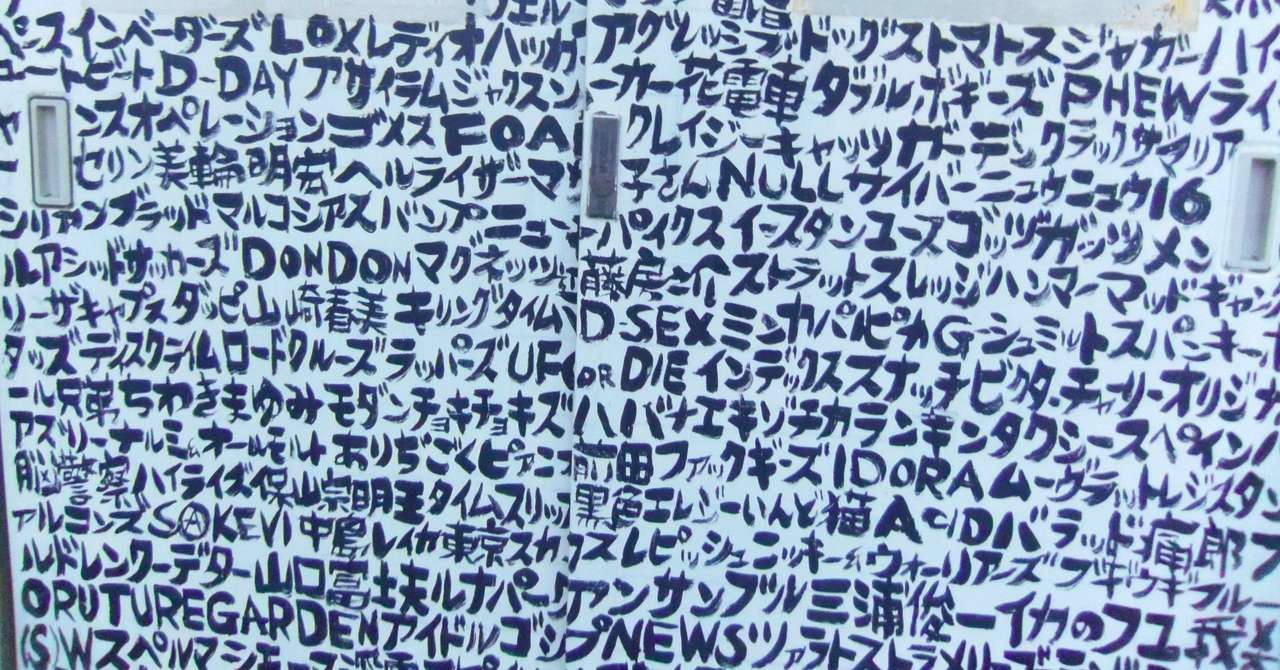 スインベーダーズLOXレディオハッカ アグレッシブドッグストマトスジャガー ハイ
ートビートD-DAYアサイラムジャクスン ーカー花電車ダブルボギーズPHEWライ
ンスオペレーションゴメスFOA クレイジーキャッツガーデンクラックザマリア
セリン美輪明宏ヘルライザーマ 子さんNULLサイバーニュウニュウ16
シリアンブラッドマルコシアスバンプニュー パイクスイースタンユースゴッヅガッツメン
ルアシッドサッカーズDONDONマグネッツ 藤房之介ストラットスレッジハンマーマッドギャン
リーザキャプスタダッピ山崎春美キリングタイム D-SEXミンカパルピカG-シュミットスパンキー
タッズディスクライムロードクルーズラッパーズUFO OR DIEインデックススナッチビクターチャーリーオリジナ
ール兄弟ちわきまゆみモダンチョキチョキズ ハバナエキゾチカランキンタクシースペイン
アズリーナルミィオールモルトありぢごくピアニ 前田ファックギーズIDORAムーヴラットレジスタン
脳警察ハイライズ保山宗明玉タイムスリッ 黒色エレジーいんど猫ACIDバラッド痛郎
アルミンズSAKEVI中島レイカ東京スカ スレピッシュニッキー&ウォーリアーズブギウギブルー
ルドレンクーデター山口富士夫ルナパーク アンサンブル三浦俊一イカのフユ
ORUTUREGARDENアイドルゴシップ NEWSツァラトストラ
(S)Wスペルマ